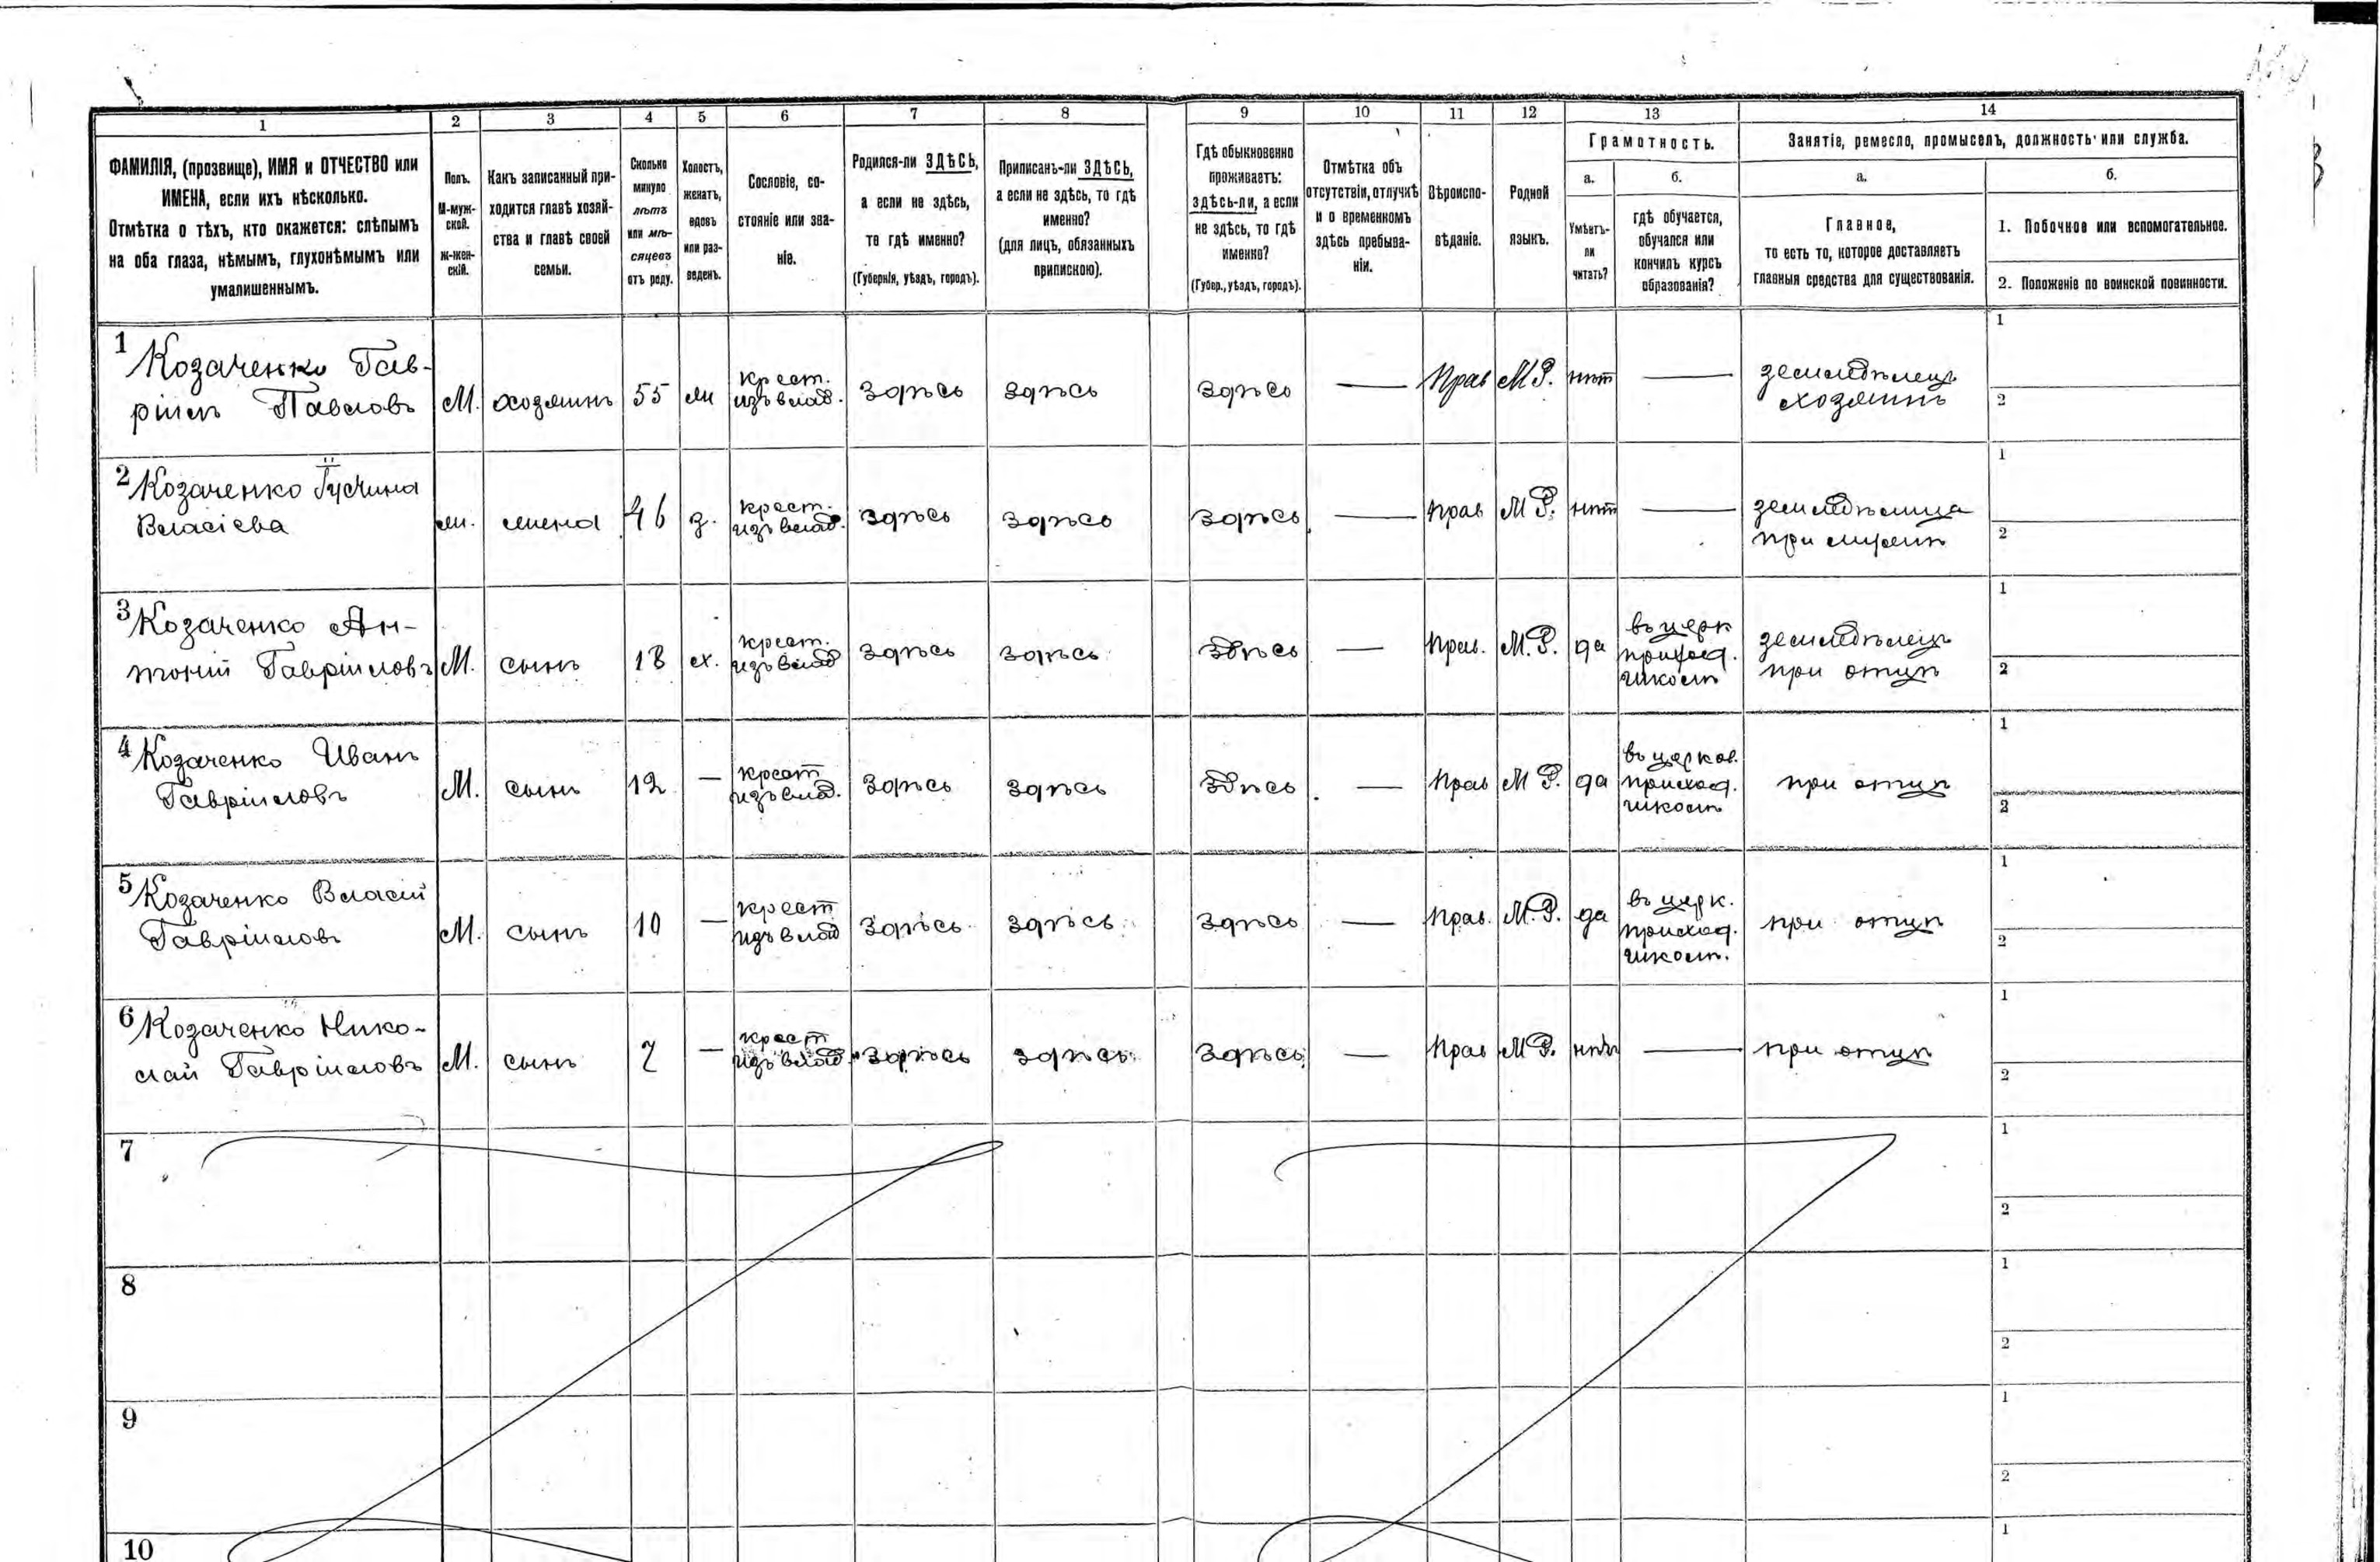 1 2 3 4 5 6 7 8 9 10 11 12 13 14
ФАМИЛІЯ, (прозвище), ИМЯ и ОТЧЕСТВО или
ИМЕНА, если ихъ нѣсколько.
Отмѣтка о тѣхъ, кто окажется: слѣпымъ
на оба глаза, нѣмымъ, глухонѣмымъ или
умалишеннымъ.
Полъ.
М-муж-
ской.
Ж-жен-
скій.
Какъ записанный при-
ходится главѣ хозяй-
ства и главѣ своей
семьи.
Сколько
минуло
лѣтъ
или мѣ-
сяцевъ
отъ роду.
Холостъ,
женатъ,
вдовъ
или раз-
веденъ.
Сословіе, со-
стояніе или зва-
ніе.
Родился-ли ЗДѢСЬ,
а если не здѣсь,
то гдѣ именно?
(Губернія, уѣздъ, городъ).
Приписанъ-ли ЗДѢСЬ,
а если не здѣсь, то гдѣ
именно?
(для лицъ, обязанныхъ
припискою).
Гдѣ обыкновенно
проживаетъ:
здѣсь-ли, а если
не здѣсь, то гдѣ
именно?
(Губер., уѣздъ, городъ).
Отмѣтка объ
отсутствіи, отлучкѣ
и о временномъ
здѣсь пребыва-
ніи.
Вѣроиспо-
вѣданіе.
Родной
языкъ.
Грамотность.
а.
Умѣетъ-
ли
читать?
б.
гдѣ обучается,
обучался или
кончилъ курсъ
образованія?
Занятіе, ремесло, промыселъ, должность или служба.
а.
Главное,
то есть то, которое доставляетъ
главныя средства для существованія.
б.
1. Побочное или вспомогательное.
2. Положеніе по воинской повинности.
1 Козаченко Гав-
ріилъ Павловъ
М. хозяинъ 55 ж
крест.
изъ влад.
здѣсь здѣсь здѣсь — Прав М Р. нѣт —
земледѣлецъ
хозяинъ
1
2
2 Козаченко
Власіева
ж. жена 46 з.
крест.
изъ влад.
здѣсь здѣсь здѣсь — прав М Р. нѣт —
земледѣлица
при мужѣ
1
2
3 Козаченко Ан-
тоній Гавріиловъ
М. сынъ 18 х.
крест.
изъ влад
здѣсь здѣсь здѣсь — Прав. М. Р. да
въ церк
приход.
школѣ
земледѣлецъ
при отцѣ
1
2
4 Козаченко Иванъ
Гавріиловъ
М. сынъ 12 —
крест
изъ влад.
здѣсь здѣсь здѣсь — Прав М Р. да
въ церков.
приход.
школѣ
при отцѣ
1
2
5 Козаченко Власій
Гавріиловъ
М. сынъ 10 —
крест
изъ влад
здѣсь здѣсь здѣсь — Прав. М. Р. да
въ церк.
приход.
школѣ.
при отцѣ
1
2
6 Козаченко Нико-
лай Гавріиловъ
М. сынъ 7 —
крест
изъ влад.
здѣсь здѣсь здѣсь — Прав М Р. нѣт —
при отцѣ
1
2
7
1
2
8
1
2
9
1
2
10
1